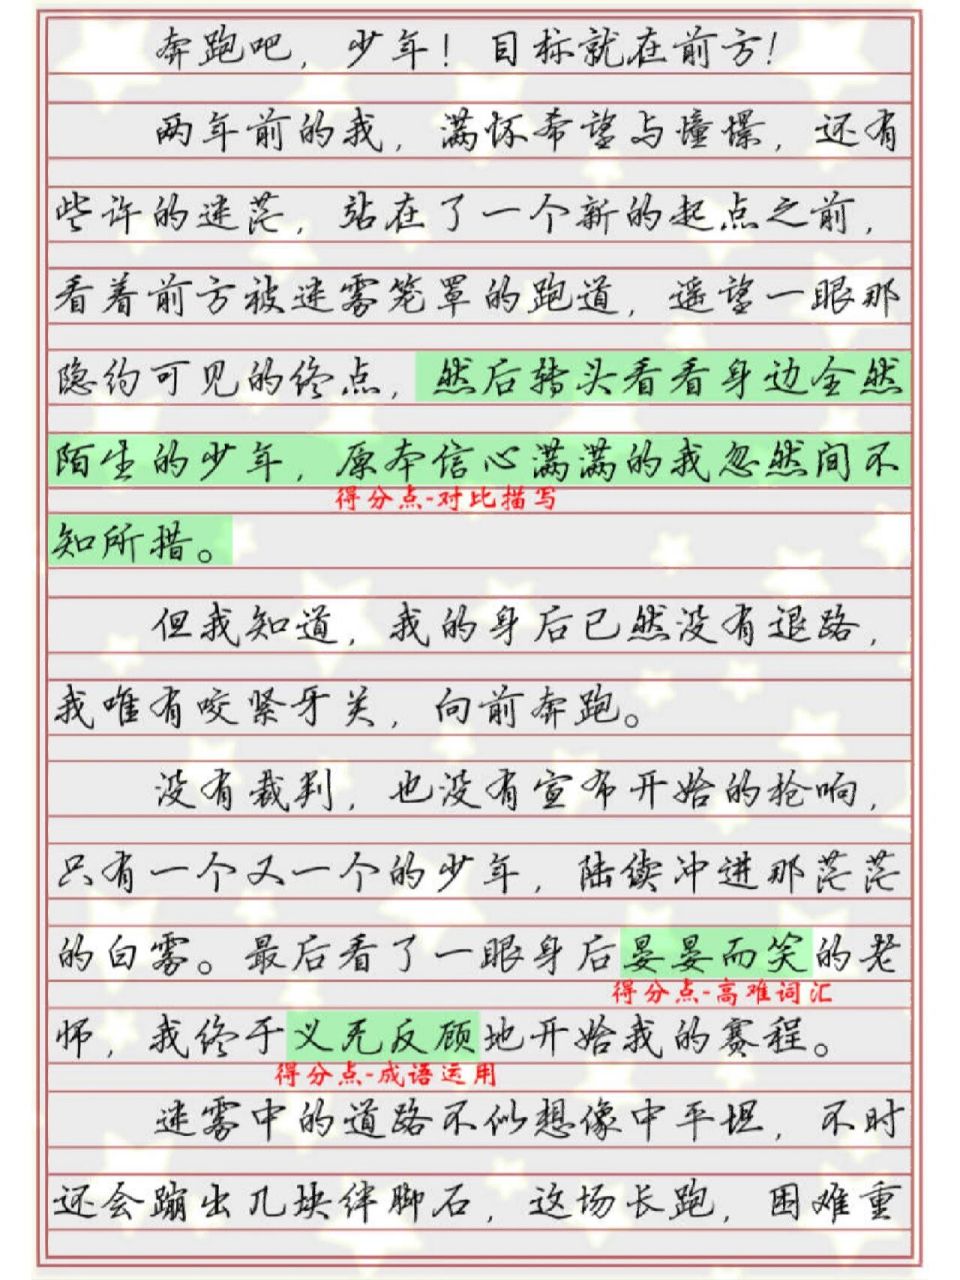 奔跑吧，少年！目标就在前方！
两年前的我，满怀希望与憧憬，还有
些许的迷茫，站在了一个新的起点之前，
看着前方被迷雾笼罩的跑道，遥望一眼那
隐约可见的终点，然后转头看看身边全然
陌生的少年，原本信心满满的我忽然间不
得分点-对比描写
知所措。
但我知道，我的身后已然没有退路，
我唯有咬紧牙关，向前奔跑。
没有裁判，也没有宣布开始的枪响，
只有一个又一个的少年，陆续冲进那茫茫
的白雾。最后看了一眼身后晏晏而笑的老
得分点-高难词汇
师，我终于义无反顾地开始我的赛程。
得分点-成语运用
迷雾中的道路不似想像中平坦，不时
还会蹦出几块绊脚石，这场长跑，困难重